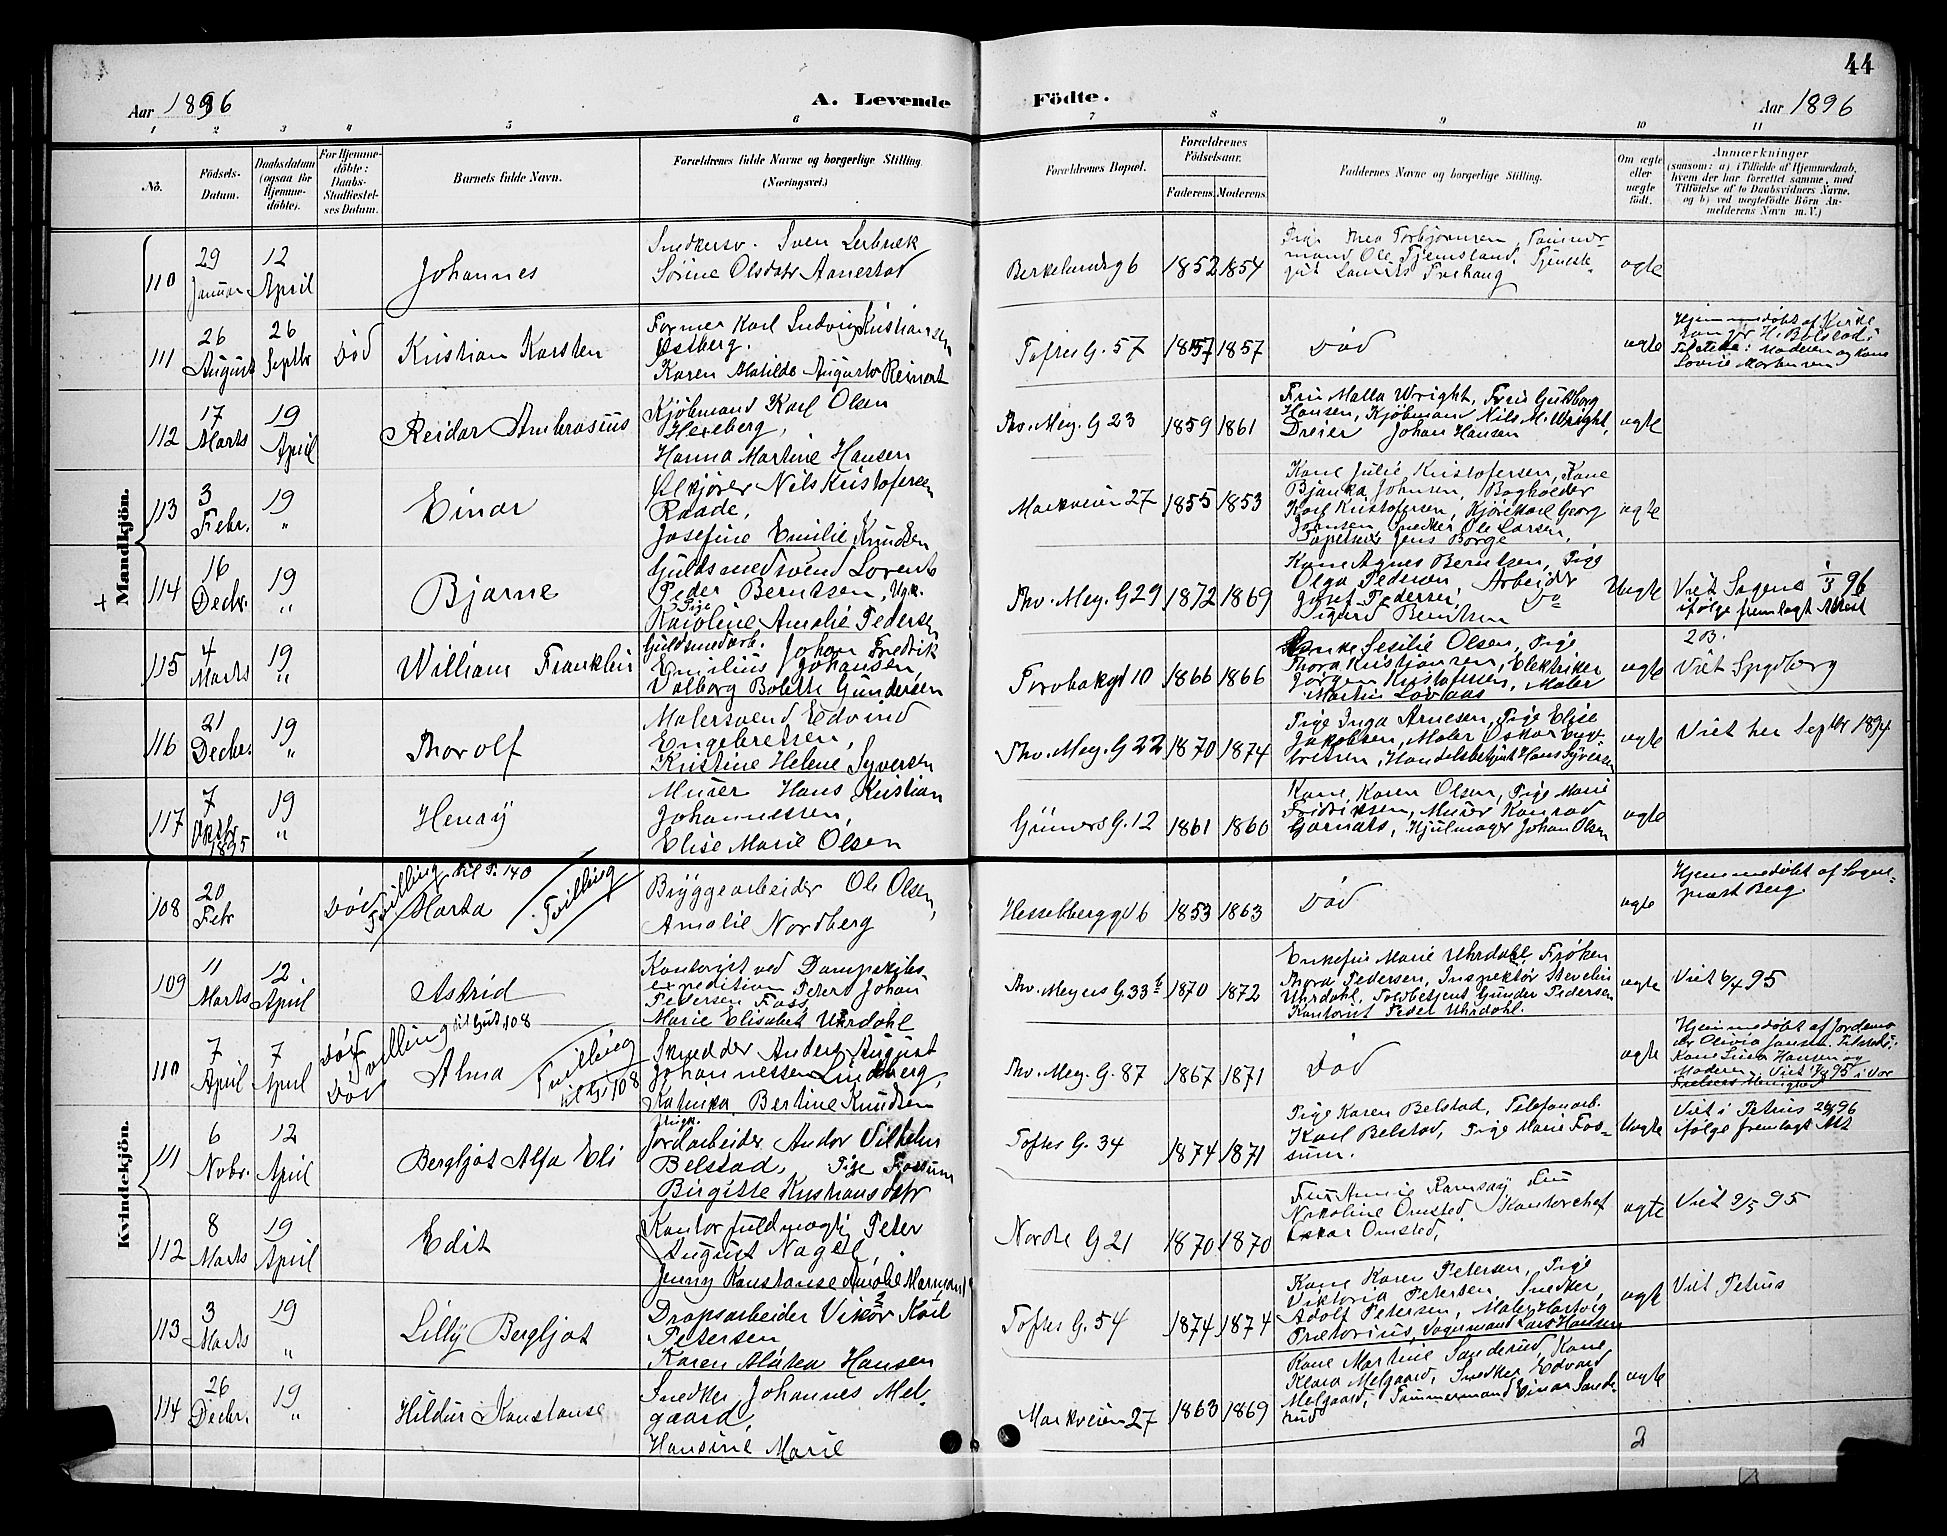 44
Aar 1896
A. Levende
Födte.
Aar 1896
1 2 3 4 5 6 7 8 9 10 11
No.
Fødsels-
Datum.
Daabsdatum
(ogsaa for
Hjemme-
døbte).
For Hjemme-
døbte:
Daabs-
Stadfæstel-
ses Datum.
Barnets fulde Navn.
Forældrenes fulde Navne og borgerlige Stilling.
(Næringsvei.)
Forældrenes Bopæl.
Forældrenes
Fødselsaar.
Faderens. Moderens.
Faddernes Navne og borgerlige Stilling.
Om ægte
eller
uægte
født.
Anmærkninger
(saasom: a) i Tilfælde af Hjemmedaab,
hvem der har forrettet samme, med
Tilføielse af to Daabsvidners Navne,
og b) ved uægtefødte Børn An-
melderens Navn m. V.)
Mandkjön.
110
29
Januar
12
April
Johannes
Snedkersv. Sven Lerbræk
Sørine Olsdatr Aanestad
Berkelandsg 6
1852 1854
Pige Thea Torbjørnsen, Tømmer-
mand Ole Fjemsland, Tjeneste-
gut Laurits
ægte
111
26
August
26
Septbr
død
Kristian Karsten
Former Karl Ludvig Kristiansen
Østberg.
Karen Matilde Augusta Reinert
Toftes G. 57
1857 1857
død
ægte
Hjemmedøbt af Kirke
sanger H. Belstad;
Moderen og Kone
Lovise Mortensen
112
17
Marts
19
April
Reidar Ambrosius
Kjøbmand Karl Olsen
Hexeberg,
Hanna Martine Hansen
Thv. Mey. G 23
1859 1861
Fru Malla Wright, Fru Guldborg
Hansen, Kjøbmand Nils M. Wright,
Dreier Johan Hansen
ægte
113
3
Febr.
19
"
Einar
Ølkjører Nils Kristofersen
Raade,
Josefine Emilie Knudsen
Markveien 27
1855 1853
Kone Julie Kristofersen, Kone
Bjanka Johnsen, Bogholder
Karl Kristofersen, Kjørekarl Georg
Johnsen, Snedker Ole Larsen,
Tapetserer Jens Borge
ægte
+
114
16
Decbr.
19
"
Bjarne
Guldsmedsvend Lorents
Peder Berntsen, Ugk.
Pige
Karoline Amalie Pedersen
Thv. Mey. G 29
1872 1869
Kone Agnes Berntsen, Pige
Olga Pedersen, Arbeider
Josef Pedersen, Do
Sigurd Berntsen
Uægte
Viet Sagene 1/3 96
ifølge fremlagt Attest
115
4
Marts
19
"
William Franklin
Guldsmedarb. Johan Fredrik
Emilius Johansen,
Valborg Bolette Gundersen
Torvbakgd 10
1866 1866
Enke Sesilie Olsen, Pige
Thora Kristiansen, Elektriker
Jørgen Kristofersen, Maler
Martin
ægte
2 B.
Viet Spydberg
116
21
Decbr.
19
"
Thorolf
Malersvend Edvind
Engebretsen,
Kristine Helene Syversen
Thv. Mey. G 22
1870 1874
Pige Inga Arnesen, Pige Elise
Jakobsen, Maler Oskar Enge-
bretsen, Handelsbetjent Hans Syversen
ægte
Viet her Septbr 1894
117
7
Oktbr
1895
19
"
Henry
Murer Hans Kristian
Johannessen,
Elise Marie Olsen
Grüners G. 12
1861 1860
Kone Karen Olsen, Pige Marie
Fredriksen, Murer Konrad
Garnaes, Hjulmager Johan Olsen
ægte
Kvindekjön.
108
20
Febr
død
Tvilling til P. 140
Marta
Tvilling
Bryggearbeider Ole Olsen,
Amalie Nordberg
Hesselbergsgd 6
1853 1863
død
ægte
Hjemmedøbt af Sogne-
præst Berg
109
11
Marts
12
April
Astrid
Kontorist ved Dampskibs-
expedition Peter Johan
Pedersen Foss,
Marie Elisabet Uhrdahl
Thv. Meyers G. 33b
1870 1872
Enkefru Marie Uhrdahl, Frøken
Thora Pedersen, Inspektør Stevelin
Uhrdahl, Toldbetjent Gunder Pedersen
Kontorist Peder Uhrdahl.
ægte
Viet 6/4 95
110
7
April
7
April
død
død
Tvilling til Gut 108
Alma
Tvilling
til G. 108
Skrædder Anders August
Johannessen Lindberg,
Katinka Bertine Knudsen
Thv. Mey. G. 87
1867 1871
død
ægte
Hjemmedøbt af Jordemo
der Olivia Jansen. Tilstede:
Kone Lina Hansen og
Moderen. Viet 95 i Vor
Frelsers Menighed
111
6
Novbr.
12
April
Bergljot Alfa Eli
Ungk.
Jordarbeider Andor Vilhelm
Belstad, Pige Fossum
Birgitte Kristiansdatr
Toftes G. 34
1874 1871
Pige Karen Belstad, Telefonarb.
Karl Belstad, Pige Marie Fos-
sum.
Uægte
Viet i Petrus 96
ifølge fremlagt Att
112
8
Marts
19
April
Edit
Kontorfuldmægtig Peter
August Nagell,
Jenny Konstanse Amalie
Nordre G 21
1870 1870
Fru Annie Ramsay, Fru
Nikoline Omsted, Kontorchef
Oskar Omsted,
ægte
Viet 9/5 95
113
3
Marts
19
"
Lilly Bergljot
Dropsarbeider Viktor Karl
Petersen
Karen Matea Hansen
Toftes G. 54
1874 1874
Kone Karen Petersen, Pige
Viktoria Petersen, Snedker
Adolf Petersen, Maler Hartvig
Prætorius, Vognmand Lars Hansen
ægte
Viet Petrus
114
26
Decbr.
19
"
Hildur Konstanse
Snedker Johannes Mel-
gaard,
Hansine Marie
Markveien 27
1863 1869
Kone Martine Sanderud, Kone
Klara Melgaard, Snedker Edvard
Melgaard, Tømmermand Einar Sande-
rud
ægte
2